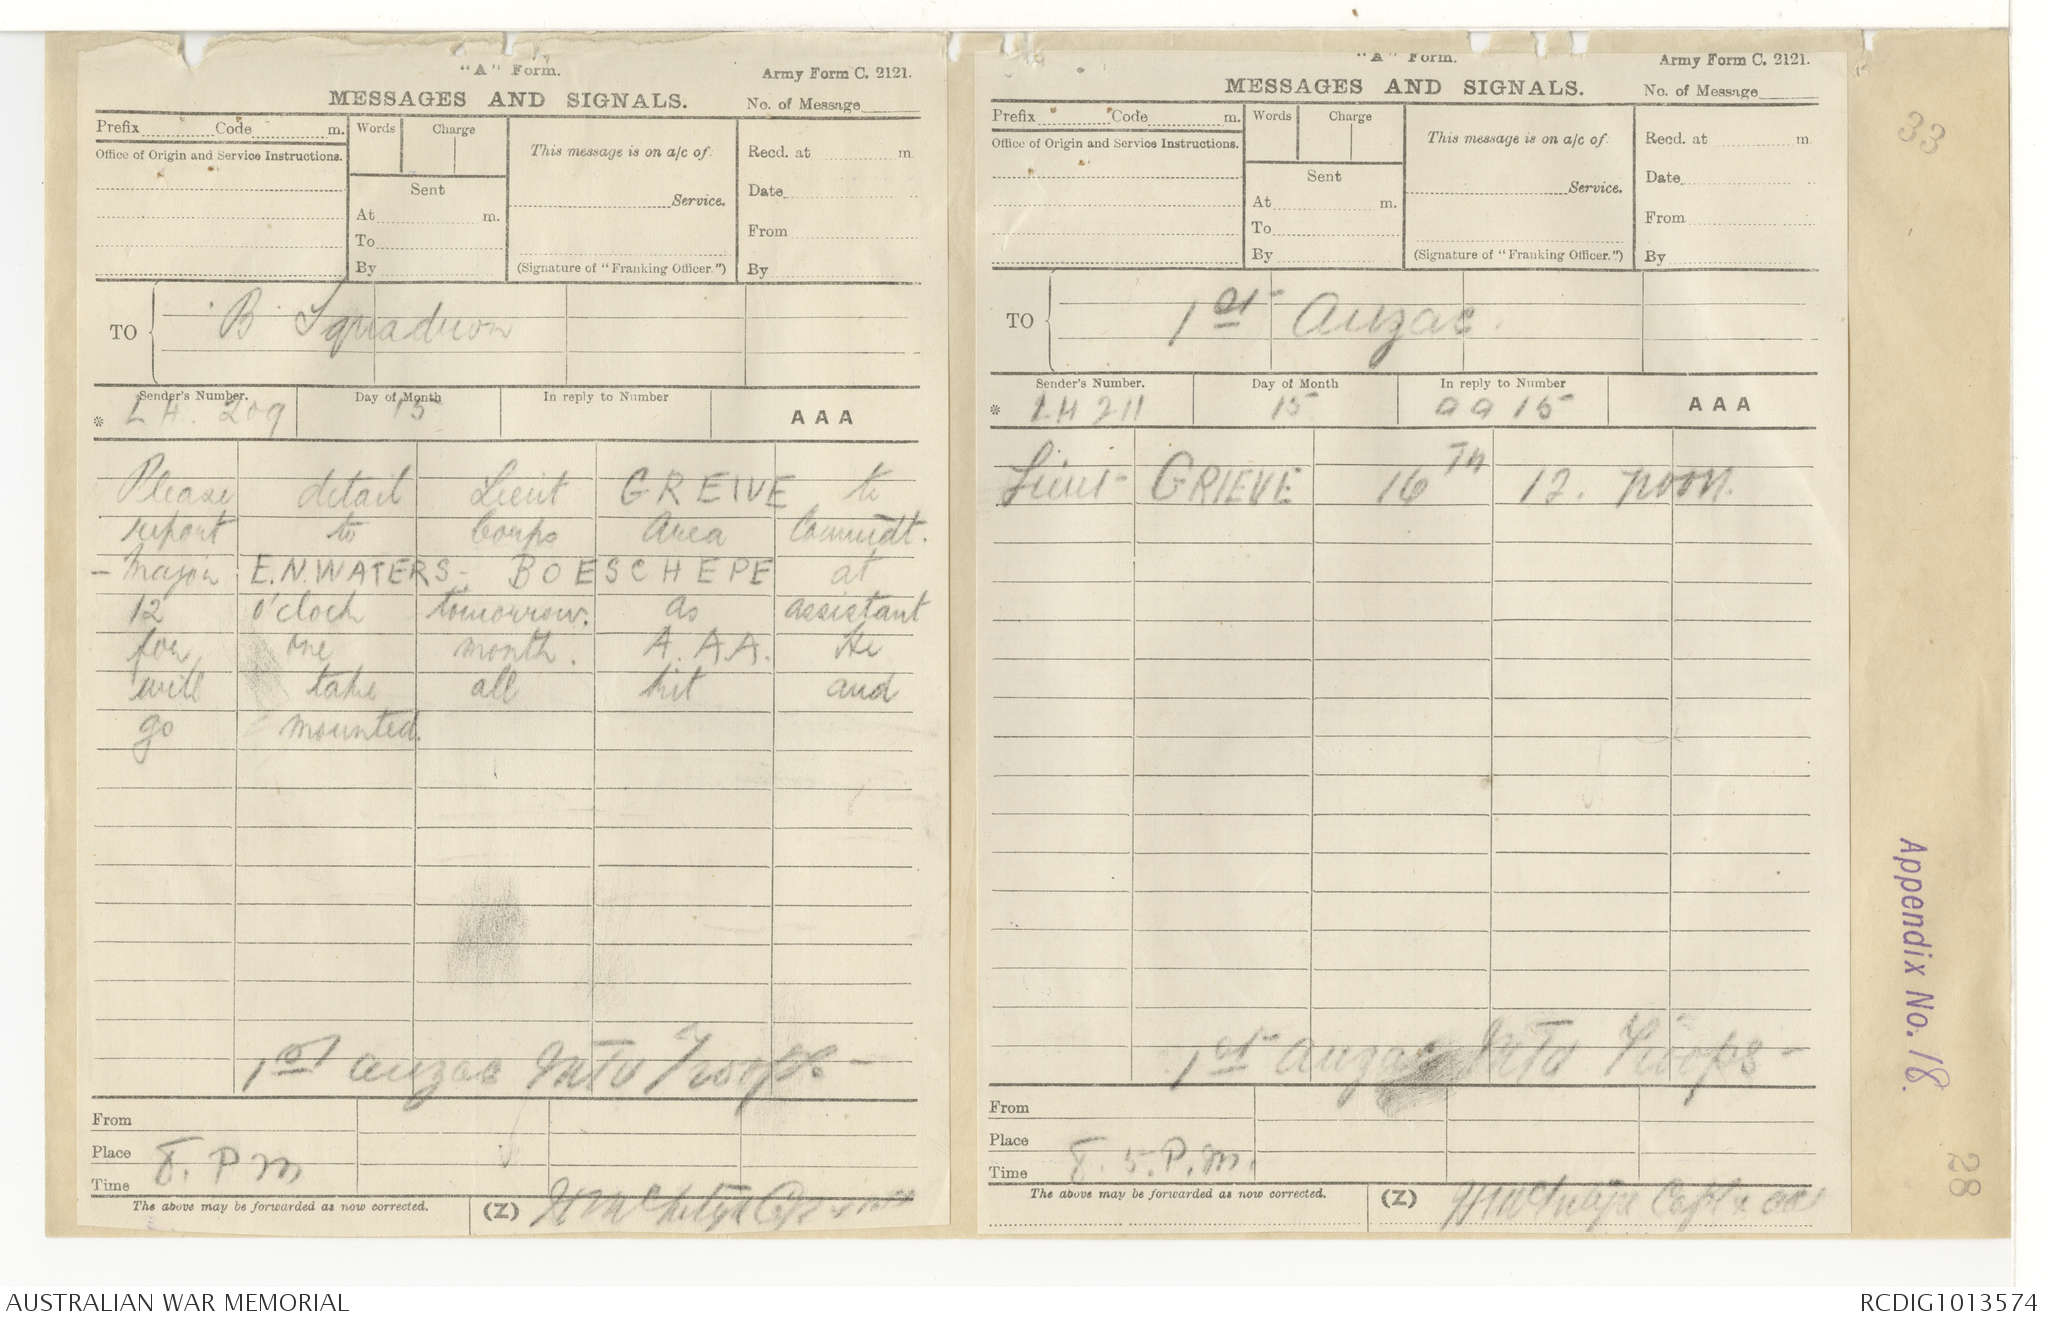 "A" Form.
Army Form C. 2121.
MESSAGES AND SIGNALS.
No. of Message
Prefix Code m.
Office of Origin and Service Instructions.
Words Charge
Sent
At m.
To
By
This message is on a/c of
Service.
(Signature of "Franking Officer.")
Recd. at m.
Date
From
By
TO
B Squadron
Sender's Number. Day of Month In reply to Number
* LH. 209 15 AAA
Please detail Lieut GREIVE to
report to Corps Area Commdt.
- Major E.N. WATERS - BOESCHEPE at
12 o'clock tomorrow. as assistant
for one month. A.A.A. He
will take all kit and
go mounted.
1st Anzac MTD Troops -
From
Place
Time
8. P m
The above may be forwarded as now corrected.
(Z)
"A" Form.
Army Form C. 2121.
MESSAGES AND SIGNALS.
No. of Message
Prefix Code m.
Office of Origin and Service Instructions.
Words Charge
Sent
At m.
To
By
This message is on a/c of
Service.
(Signature of "Franking Officer.")
Recd. at m
Date
From
By
TO
1st Anzac.
Sender's Number. Day of Month In reply to Number
* LH 211 15 a a 15 AAA
Lieut - GRIEVE 16TH 12. noon.
1st Anzac MTD Troops -
From
Place
Time
8. 5. P.m.
The above may be forwarded as now corrected.
(Z)
33
Appendix No. 18.
28
AUSTRALIAN WAR MEMORIAL
RCDIG1013574